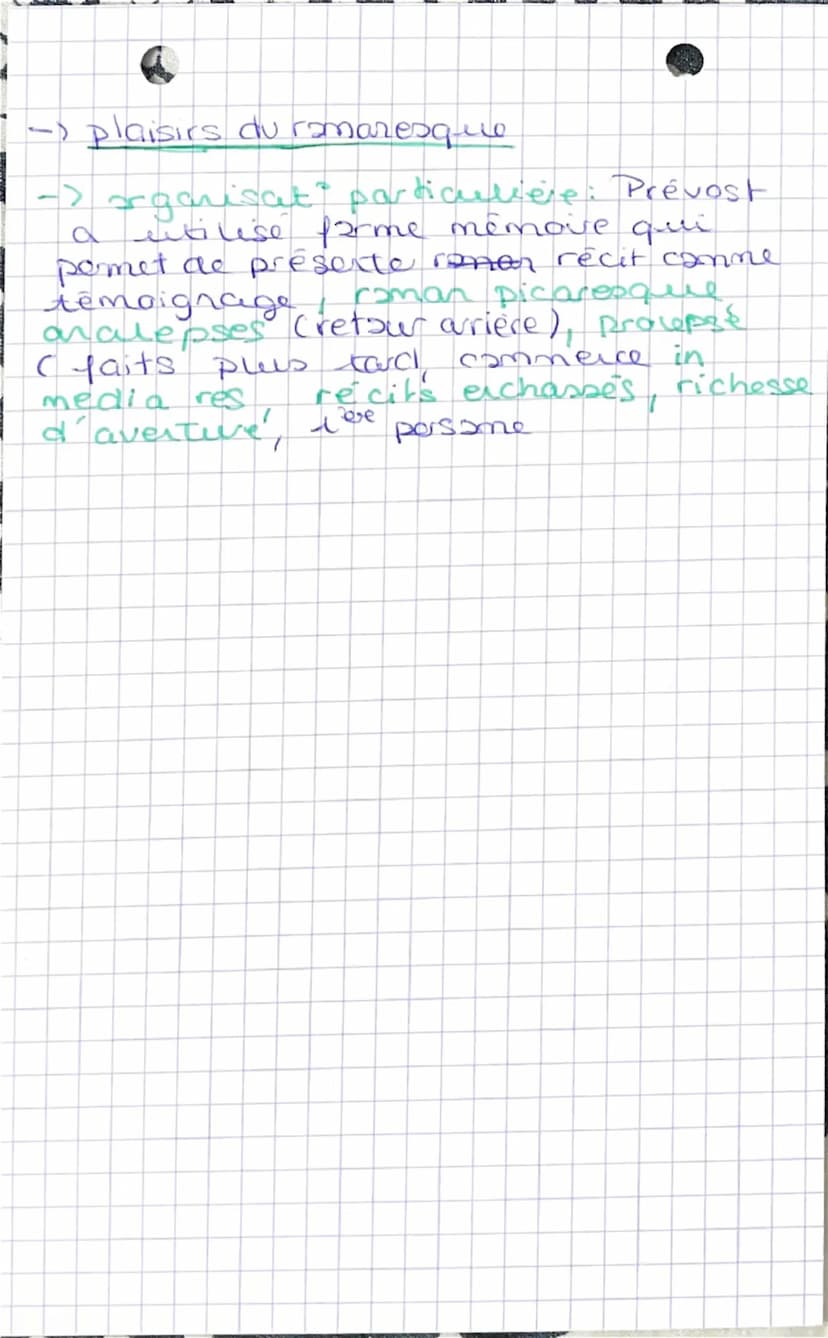 -> plaisirs du romanesque
-> organisat° particulière : Prévost
a utilisé forme mémoire qui
permet de présente roman récit comme
témoignage, roman picaresque
analepses (retour arrière), prolepse
( faits plus tard, commence in
media res récits enchassés, richesse
d'aventure, 1ère personne